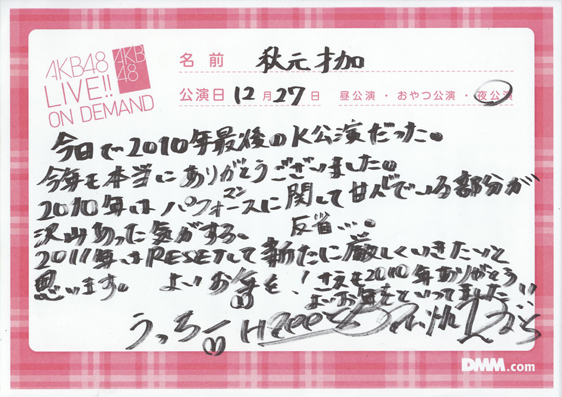 AKB48
LIVE!!
ON DEMAND
AKB
48
名 前 秋元才加
公演日 12月27日 昼公演・おやつ公演・夜公演
今日で2010年最後のK公演だった。
今年も本当にありがとうございました。
2010年はパフォーマンスに関して甘んでいる部分が
沢山あった気がする。 反省…。
2011年はRESETして新たに厳しくいきたいと
思います。 よいお年を!
2010年ありがとう
よいお年を
うっちー
DMM.com